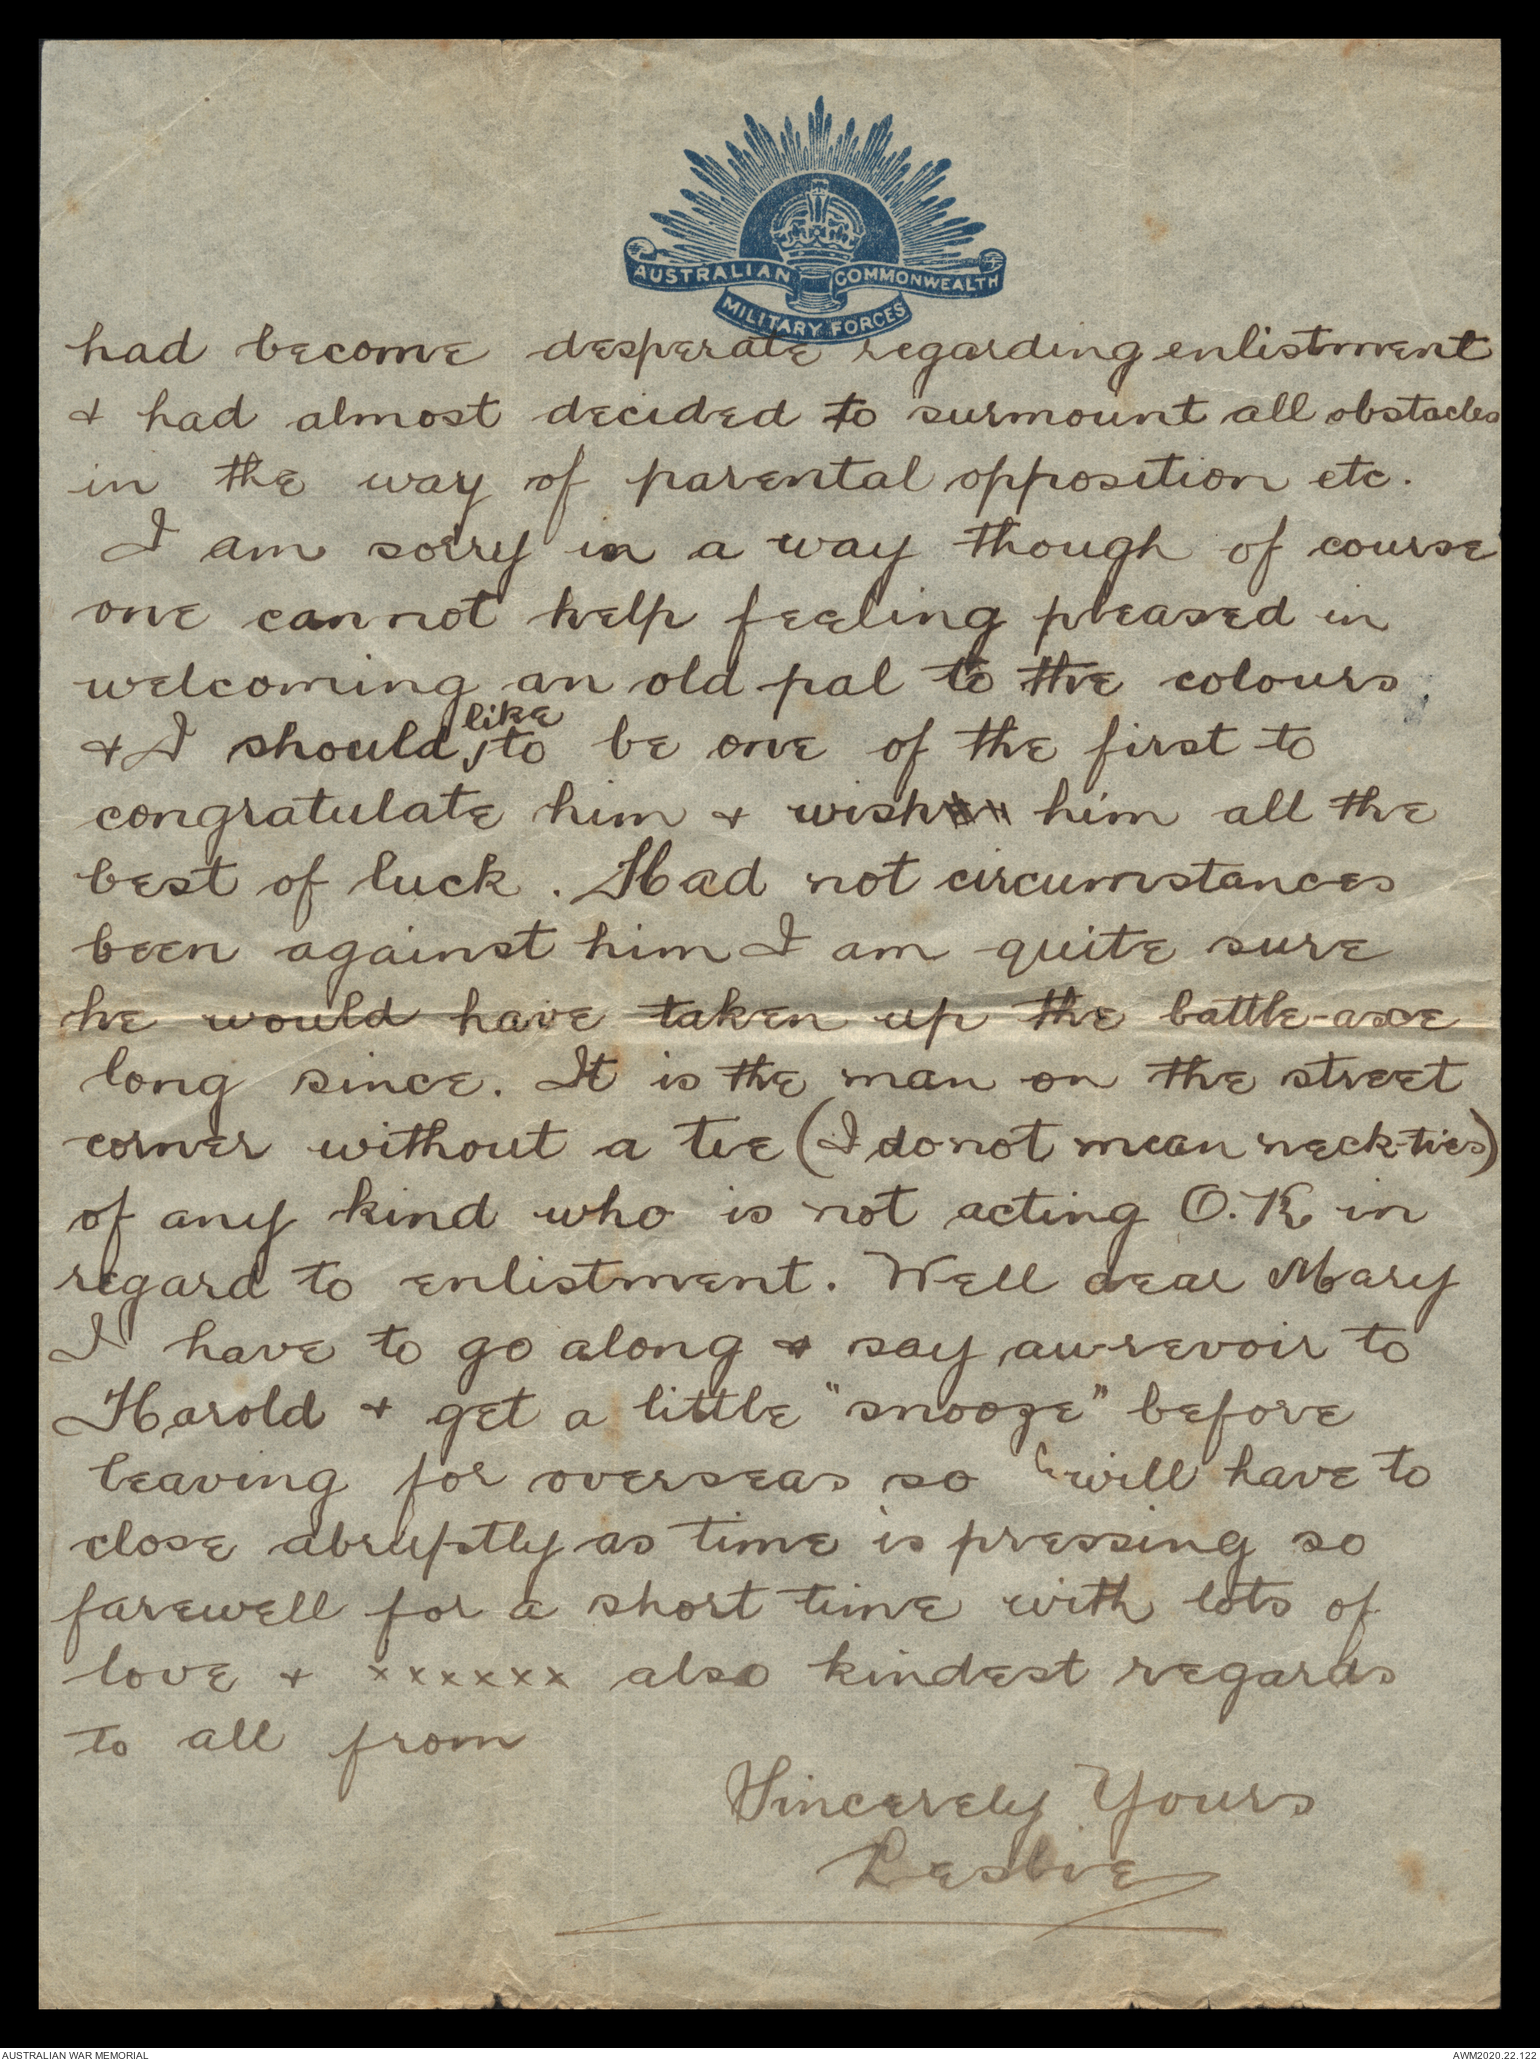 AUSTRALIAN COMMONWEALTH
MILITARY FORCES
had become desperate regarding enlistment
& had almost decided to surmount all obstacles
in the way of parental opposition etc.
I am sorry in a way though of course
one cannot help feeling pleased in
welcoming an old pal to the colours
& I should like to be one of the first to
congratulate him & wish him all the
best of luck. Had not circumstances
been against him I am quite sure
he would have taken up the battle-axe
long since. It is the man on the street
corner without a tie (I do not mean neck-ties)
of any kind who is not acting O.K in
regard to enlistment. Well dear Mary
I have to go along & say au-revoir to
Harold & get a little "snooze" before
leaving for overseas so will have to
close abruptly as time is pressing so
farewell for a short time with lots of
love & xxxxxx also kindest regards
to all from
Sincerely Yours
Leslie
AUSTRALIAN WAR MEMORIAL
AWM2020.22.122